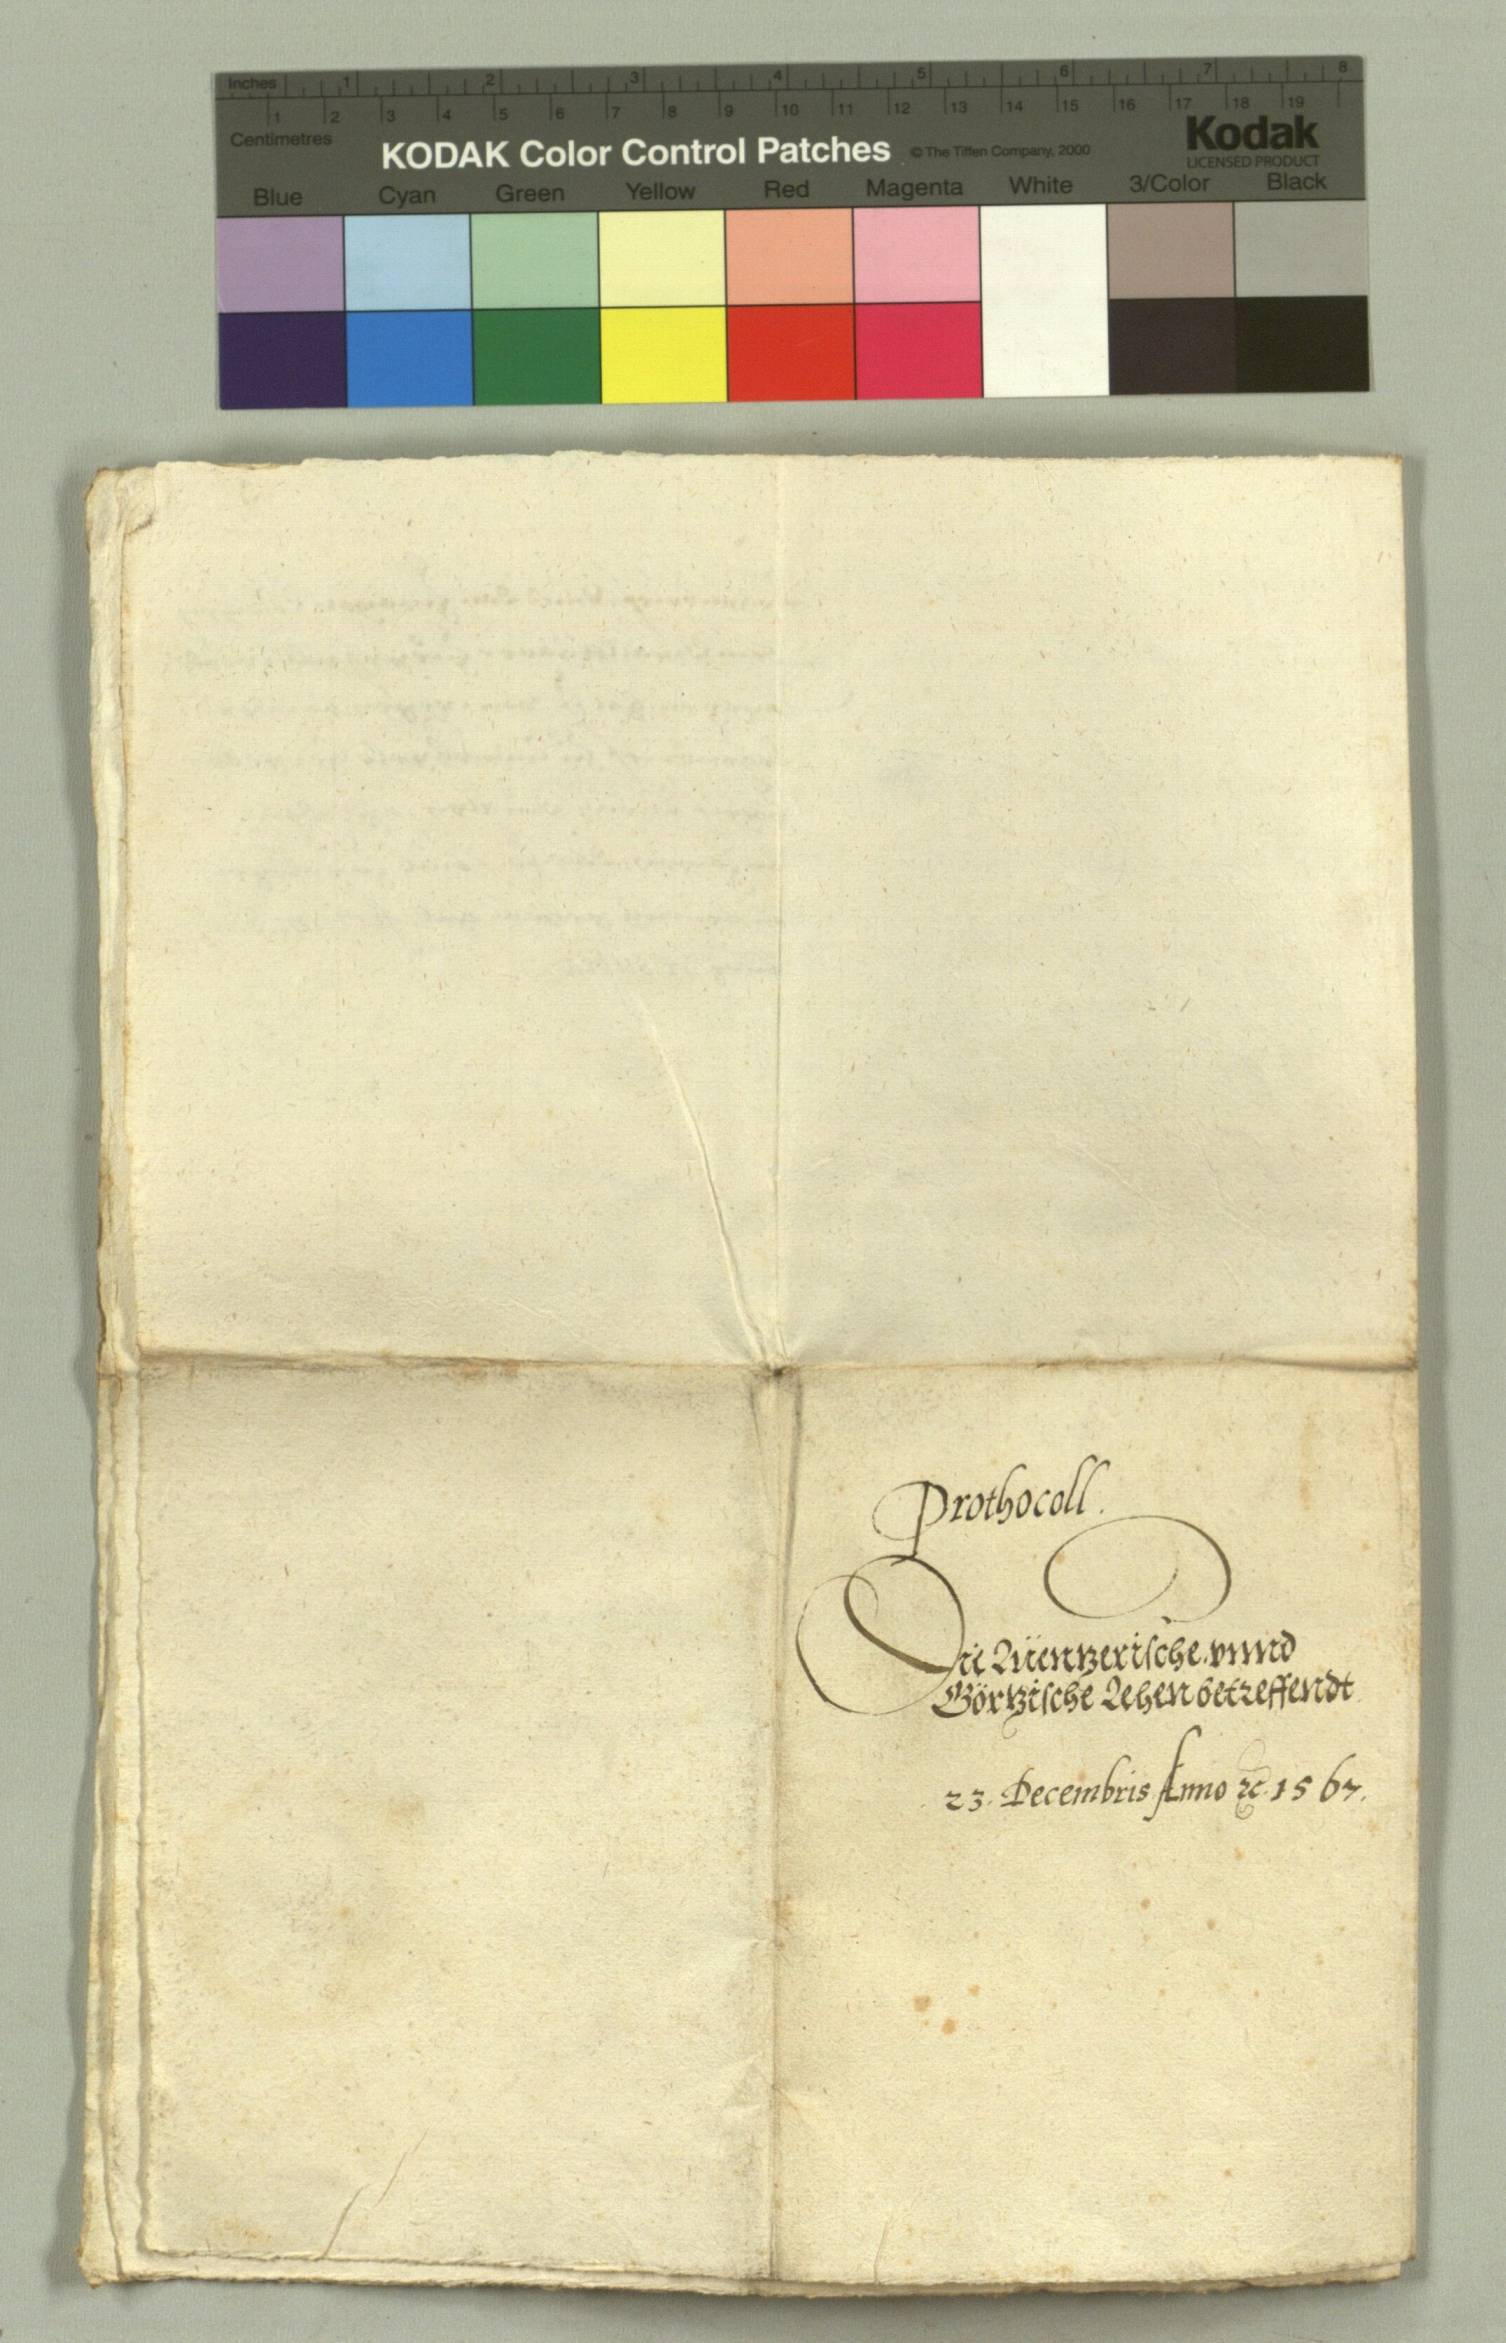 Inches 1 2 3 4 5 6 7 8
1 2 3 4 5 6 7 8 9 10 11 12 13 14 15 16 17 18 19
Centimetres
KODAK Color Control Patches © The Tiffen Company, 2000 Kodak
LICENSED PRODUCT
Blue Cyan Green Yellow Red Magenta White 3/Color Black
Prothocoll.
Die Lüentzerische vnnd
Görtzische Lehen betreffendt
23. Decembris Anno ꝛc. 1567.